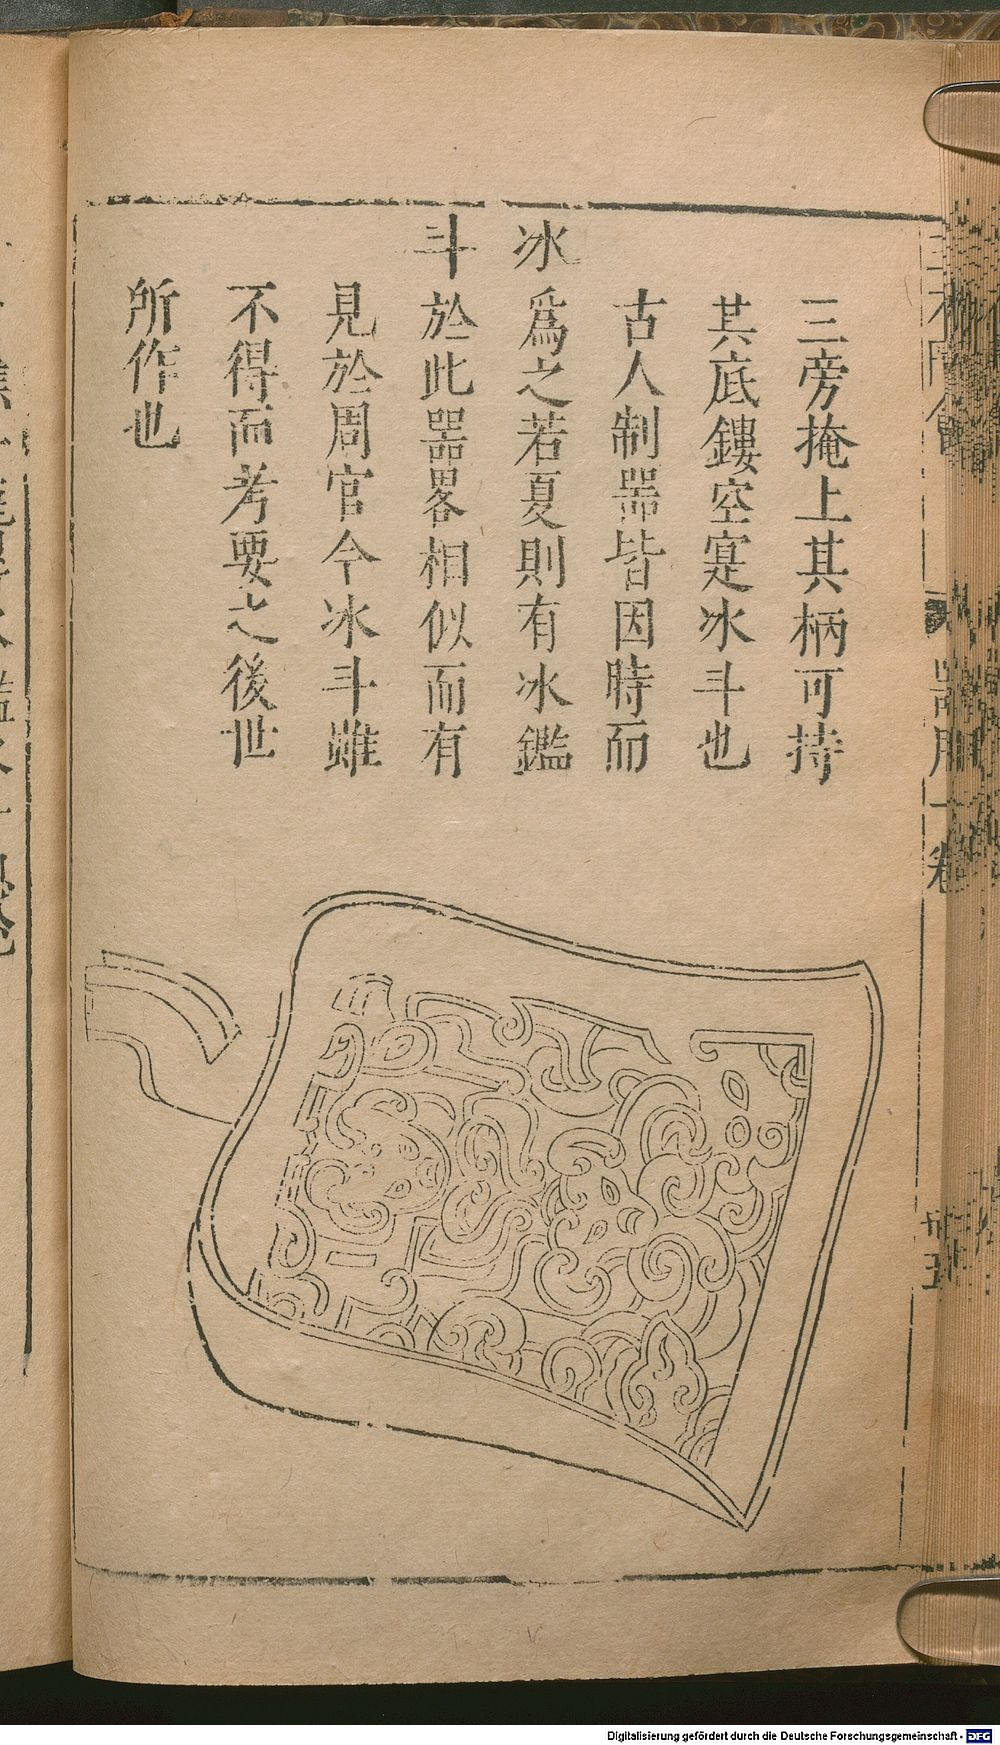 三旁掩上其柄可持
其底鏤空寔冰斗也
古人制器皆因時而
冰
爲之若夏則有冰鑑
斗
於此噐畧相似而有
見於周官今冰斗雖
不得而考要之後世
所作也
Digitalisierung gefördert durch die Deutsche Forschungsgemeinschaft - DFG